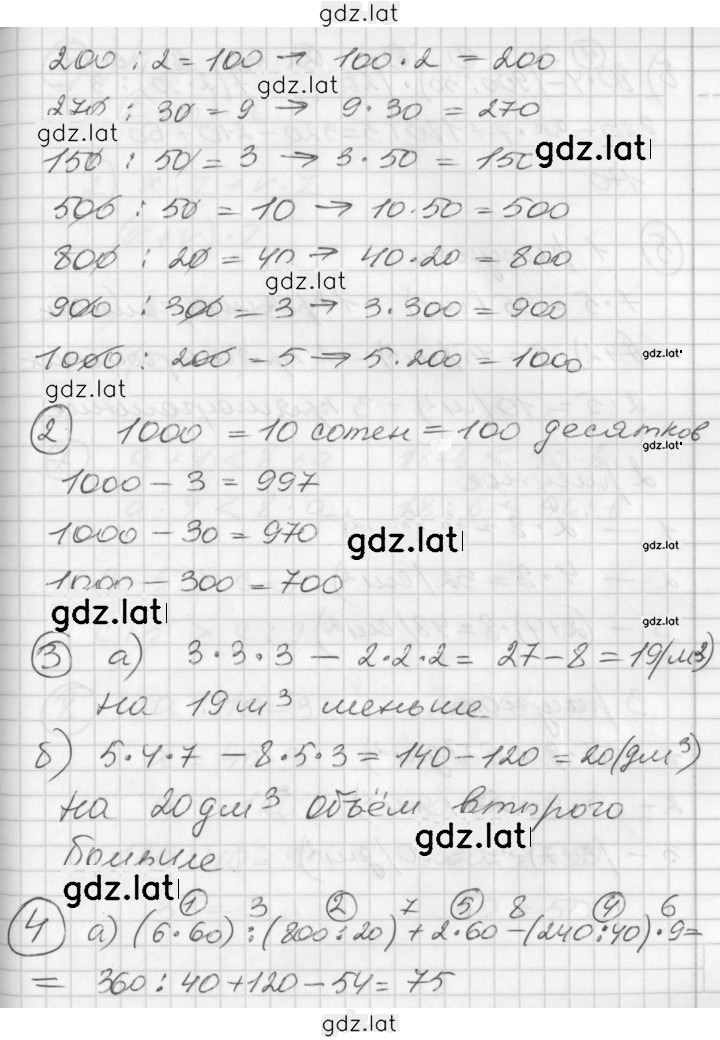 gdz.lat
200 : 2 = 100 → 100 · 2 = 200
gdz.lat
270 : 30 = 9 → 9 · 30 = 270
gdz.lat
150 : 50 = 3 → 3 · 50 = 150
gdz.lat
500 : 50 = 10 → 10 · 50 = 500
800 : 20 = 40 → 40 · 20 = 800
gdz.lat
900 : 300 = 3 → 3 · 300 = 900
1000 : 200 = 5 → 5 · 200 = 1000
gdz.lat
gdz.lat
② 1000 = 10 сотен = 100 десятков
gdz.lat
1000 − 3 = 997
1000 − 30 = 970
gdz.lat
gdz.lat
1000 − 300 = 700
gdz.lat
gdz.lat
③ а) 3 · 3 · 3 − 2 · 2 · 2 = 27 − 8 = 19 (м³)
на 19 м³ меньше
б) 5 · 4 · 7 − 8 · 5 · 3 = 140 − 120 = 20 (дм³)
на 20 дм³ объём второго
gdz.lat
больше
gdz.lat
① 3 ② 7 ⑤ 8 ④ 6
④ а) (6 · 60) : (800 : 20) + 2 · 60 − (240 : 40) · 9 =
= 360 : 40 + 120 − 54 = 75
gdz.lat